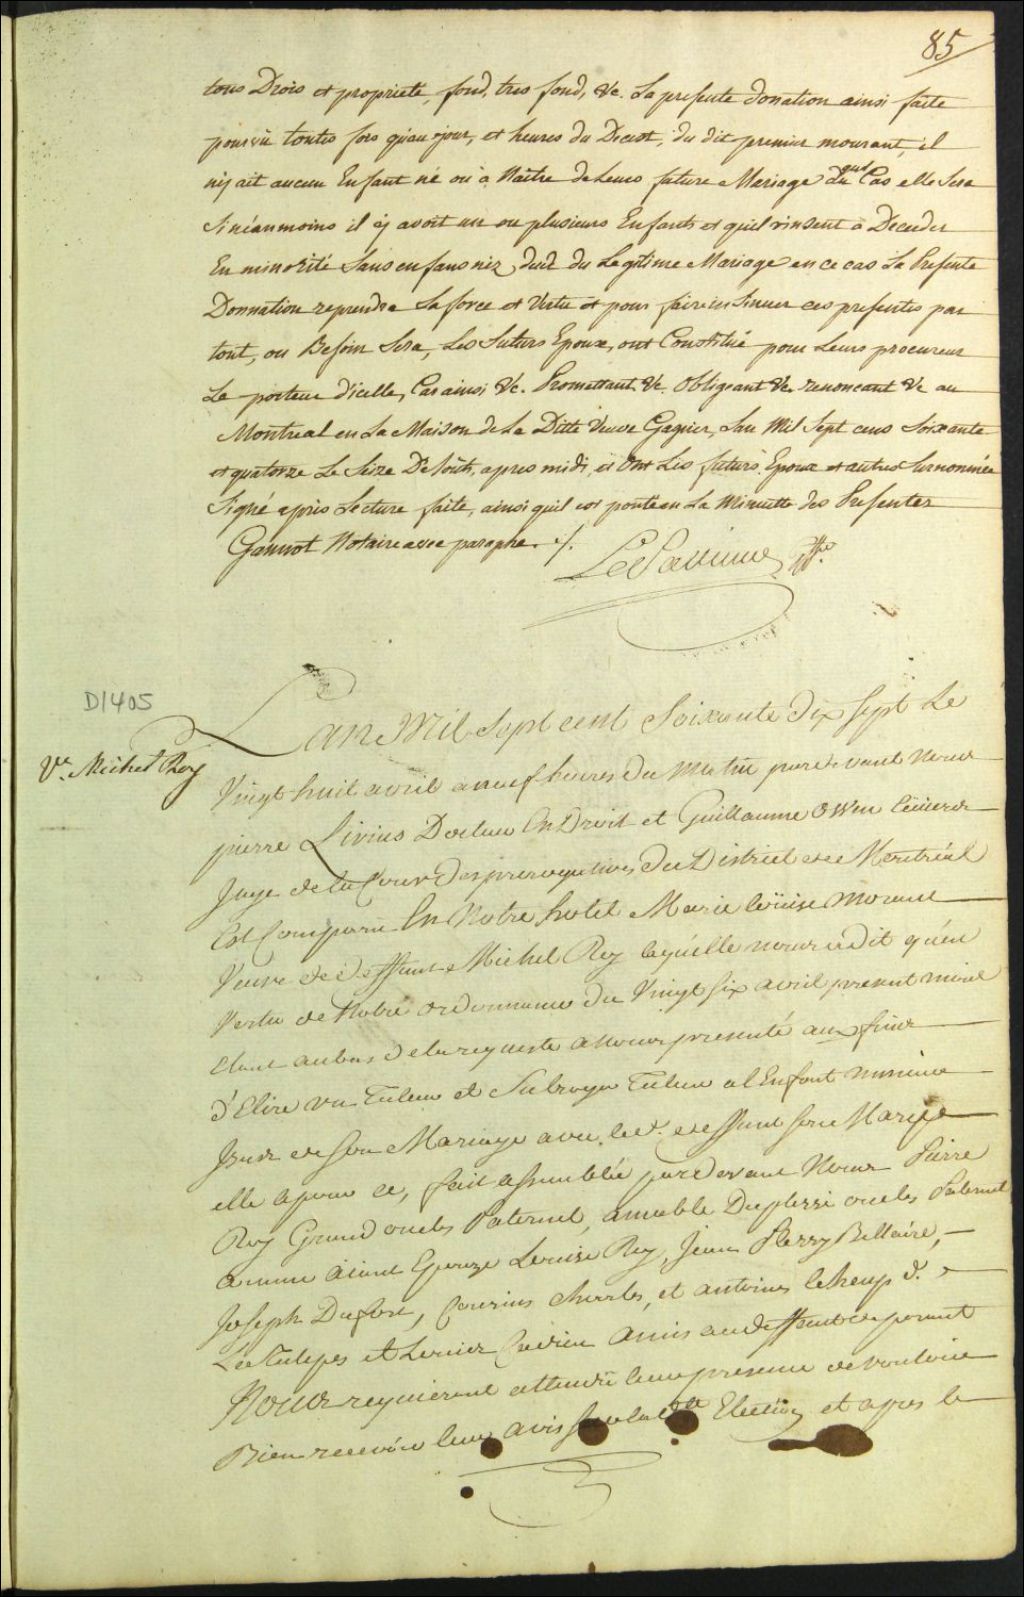 85
tous Drois et propriete, fond, tres fond, &c. La presente donation ainsi faite
pourvû toutes fois qu'au jour, et heures du Deces, du dit premier mourant, il
n'y ait aucun Enfant né ou à Naître de Leurs future Mariage auquel Cas elle Sera
Si néanmoins il y avoit un ou plusieurs Enfants et quil vinsent à Deceder
En minorité Sans enfans nez, dud. du Legitime Mariage en ce cas La Presente
Donnation reprendra Sa force et Vertu et pour faire insinuer ces presentes par
tout, ou Besoin Sera, Les futurs Epoux, ont Constitué pour Leurs procureur
Le porteur d'icelle, Car ainsi &c. Promettant &c. Obligeant &c. renoncant &c au
Montreal en La Maison de La Ditte Veuve Gagnier, Lan Mil Sept cens Soixante
et quatorze Le Seize D'Août, apres midi, et Ont Les futurs Epoux et autres Surnommée
Signé après Lecture faite, ainsi quil est porté en La Minutte des Presentes
Notaire avec paraphe. ./.
D1405
Ve. Michel Roy
Lan Mil Sept cent Soixante dix Sept Le
Vingt huit avril a neuf heures du Matin pardevant nous
pierre Livius Docteur En Droit et Guillaume Owen Ecuiers
Juge de la Cour Des prerogatives du District de Montréal
Est Comparu En Notre hotel Marie loüise Morand
Veuve de deffunt Michel Roy laquelle nous a dit qu'en
Vertu de Notre ordonnance du Vingt Six avril present mois
Etant au bas de la requeste a nous presenté aux fins
d'Elire un Tuteur et Subroger Tuteur a l'Enfant mineur
Issus de Son Mariage avec led. deffunt Son Mary
elle a pour ce, fait assemblée pardevant Nous Pierre
Roy Grand oncle Paternel, amable Duplessi oncle Paternel
a cause aiant Epouze Louise Roy, Jean Bellaire,
Joseph Dufort, Cousins Charles, et antoine
et amis au deffunt
Nous requierent attendu leur presence de vouloir
Bien recevoir leur avis Sur lad. Election et apres le